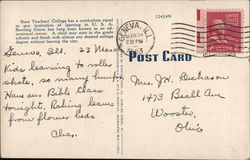 State Teachers' College has a curriculum equal
to any institution of learning in U. S. A.
Bowling Green has long been known as an educational center. A child may start in the grade
schools and finish with almost any desired college
degree without leaving the city.
11424N
GENEVA, ILL.
MAR 24
PM
POST CARD
Geneva, Ill. 23 Mar
Kids learning to roller
skate, so many bumps.
Have our Bible Class
tonight. Raking leaves
from flower beds
Chas.
Mrs. J. H. Richason
1473 Beall Ave
Wooster,
Ohio